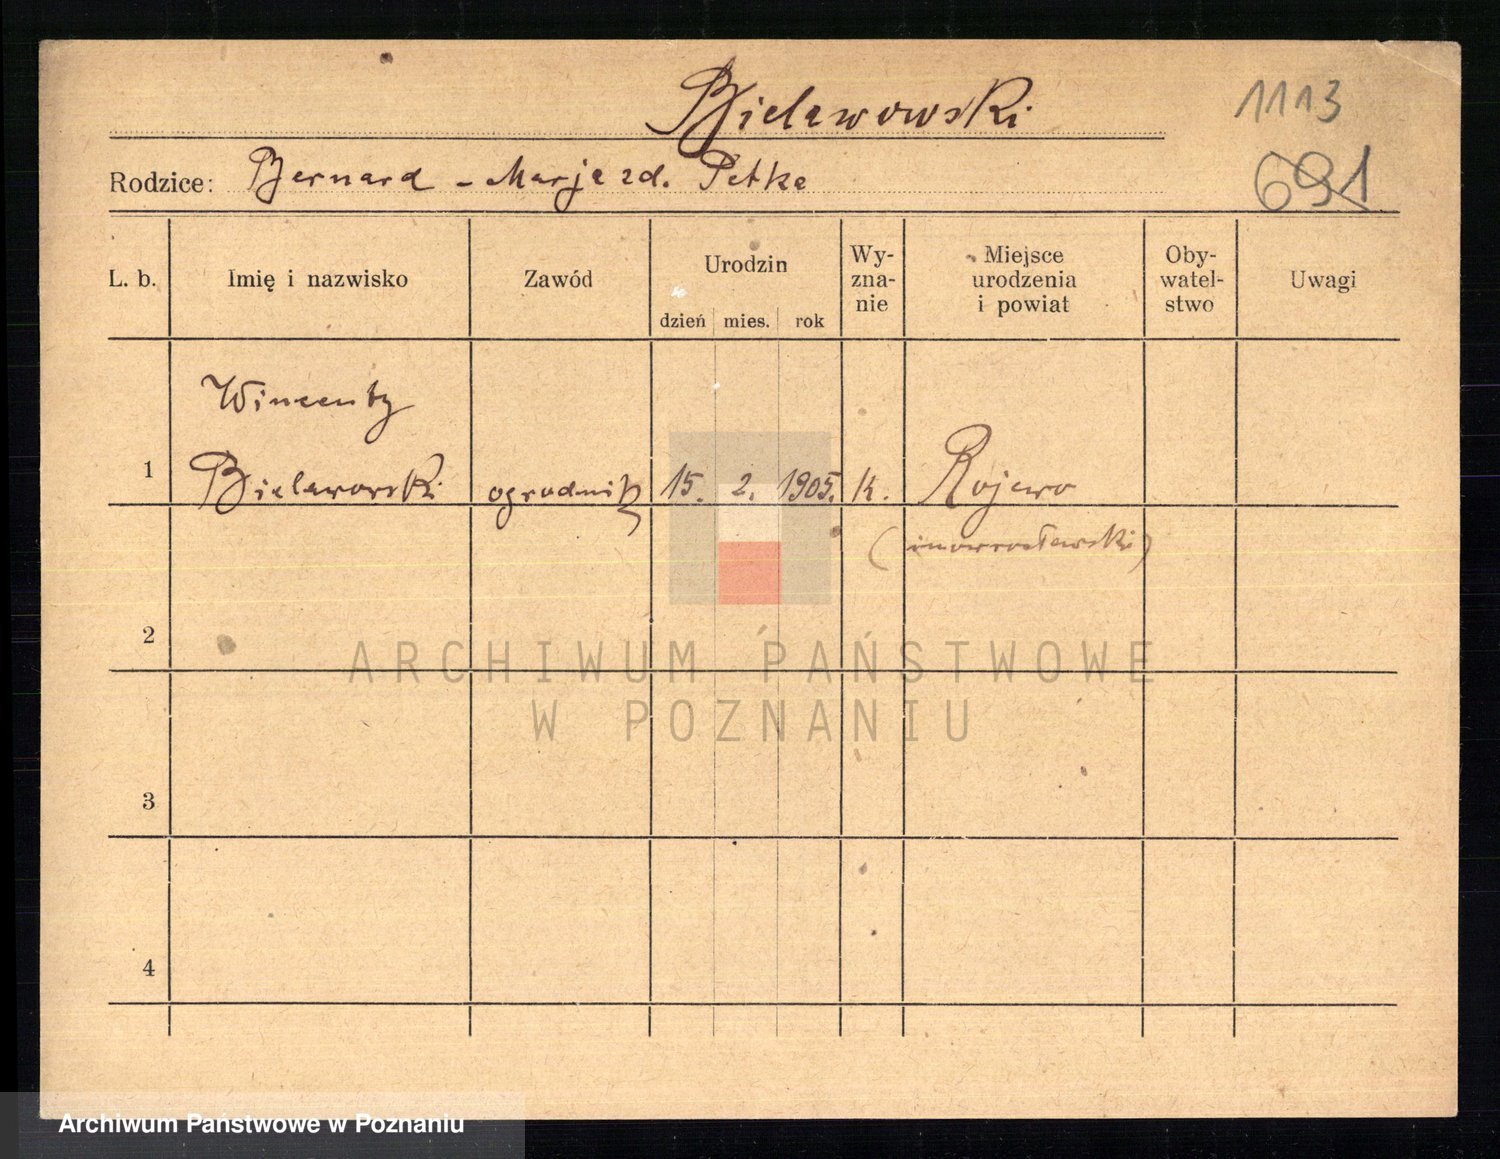 Bielawowski
1113
Rodzice: Bernard - Marja zd. Petka
691
L. b. Imię i nazwisko Zawód Urodzin dzień mies. rok Wy-zna-nie Miejsce urodzenia i powiat Oby-watel-stwo Uwagi
Wincenty
1 Bielawowski ogrodnik 15. 2. 1905. k. Rojewo
(inowrocławski)
2
ARCHIWUM PAŃSTWOWE
W POZNANIU
3
4
Archiwum Państwowe w Poznaniu